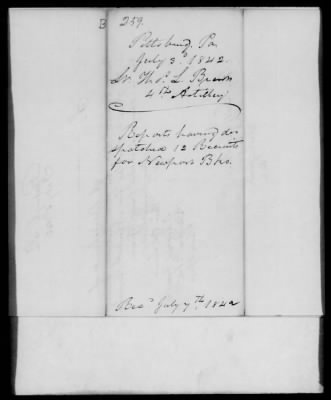 B 259.
Pittsburg, Pa
July 3d 1842.
Lt Thos. L. Brent
4th Artillery
Reports having des
spatched 12 Recruits
for Newport Bks.
Recd July 7th 1842